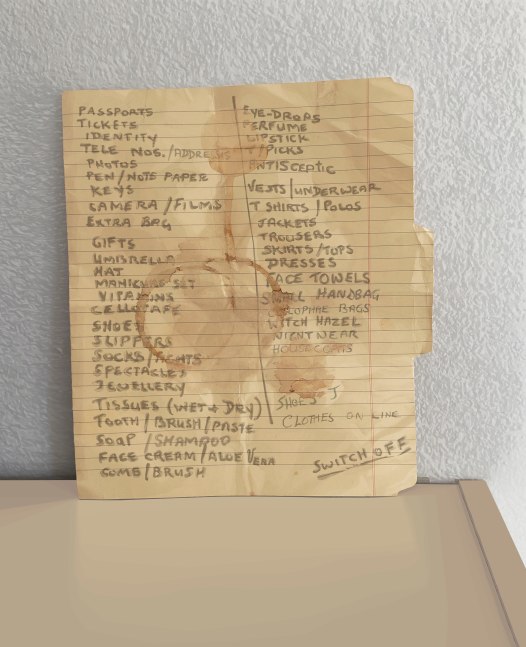 PASSPORTS
TICKETS
IDENTITY
TELE NOS./ADDRESS
PHOTOS
PEN/NOTE PAPER
KEYS
CAMERA/FILMS
EXTRA BAG
GIFTS
UMBRELLA
HAT
MANICURE SET
VITAMINS
CELLOTAPE
SHOES
SLIPPERS
SOCKS/TIGHTS
SPECTACLES
JEWELLERY
TISSUES (WET + DRY)
TOOTH/BRUSH/PASTE
SOAP/SHAMPOO
FACE CREAM/ALOE VERA
COMB/BRUSH
EYE-DROPS
PERFUME
LIPSTICK
T/PICKS
ANTISCEPTIC
VESTS/UNDERWEAR
T SHIRTS/POLOS
JACKETS
TROUSERS
SKIRTS/TOPS
DRESSES
FACE TOWELS
SMALL HANDBAG
BAGS
WITCH HAZEL
NIGHTWEAR
HOUSECOATS
SHOES
CLOTHES ON LINE
SWITCH OFF